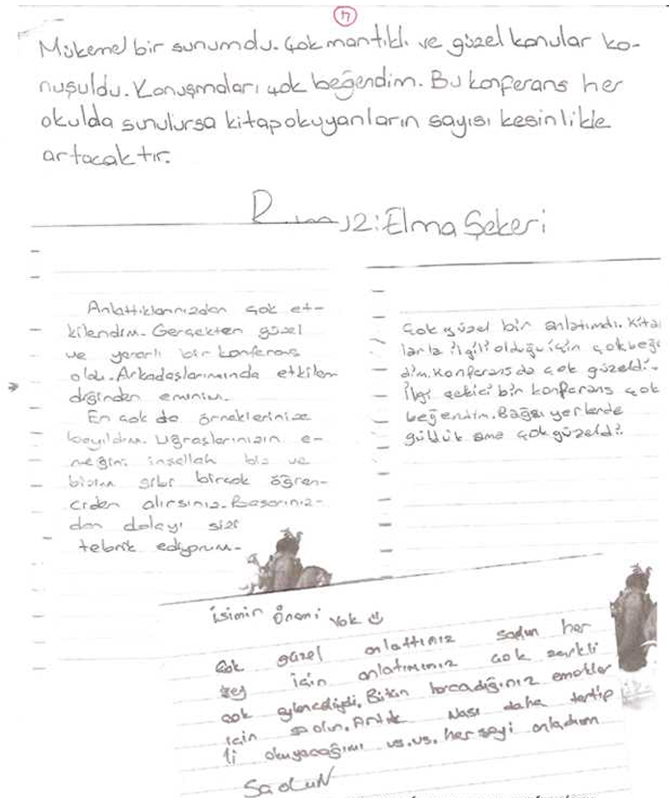 17
Mükemel bir sunumdu. Çok mantıklı ve güzel konular ko-
nuşuldu. Konuşmaları çok beğendim. Bu konferans her
okulda sunulursa kitap okuyanların sayısı kesinlikle
artacaktır.
12: Elma Şekeri
Anlattıklarınızdan çok et-
kilendim. Gerçekten güzel
ve yararlı bir konferans
oldu. Arkadaşlarımında etkilen
diğinden eminim.
En çok da örneklerinize
bayıldım. Uğraşlarınızın e-
meğini inşallah biz ve
bizim gibi birçok öğren-
ciden alırsınız. Başarınız-
dan dolayı sizi
tebrik ediyorum.
Çok güzel bir anlatımdı. Kitap
larla ilgili olduğu için çok beğen
dim. Konferans da çok güzeldi.
İlgi çekici bir konferans çok
beğendim. Bağzı yerlerde
güldük ama çok güzeldi.
isimin Önemi Yok
Çok güzel anlattınız sağlun her
şey için anlatımınız çok zevkli
çok eylenceliydi. Bütün harcadığınız emekler
için sağolun. Artık Nası daha tertip
li okuyacağımı vs. vs. her şeyi anladım
SaOLUN